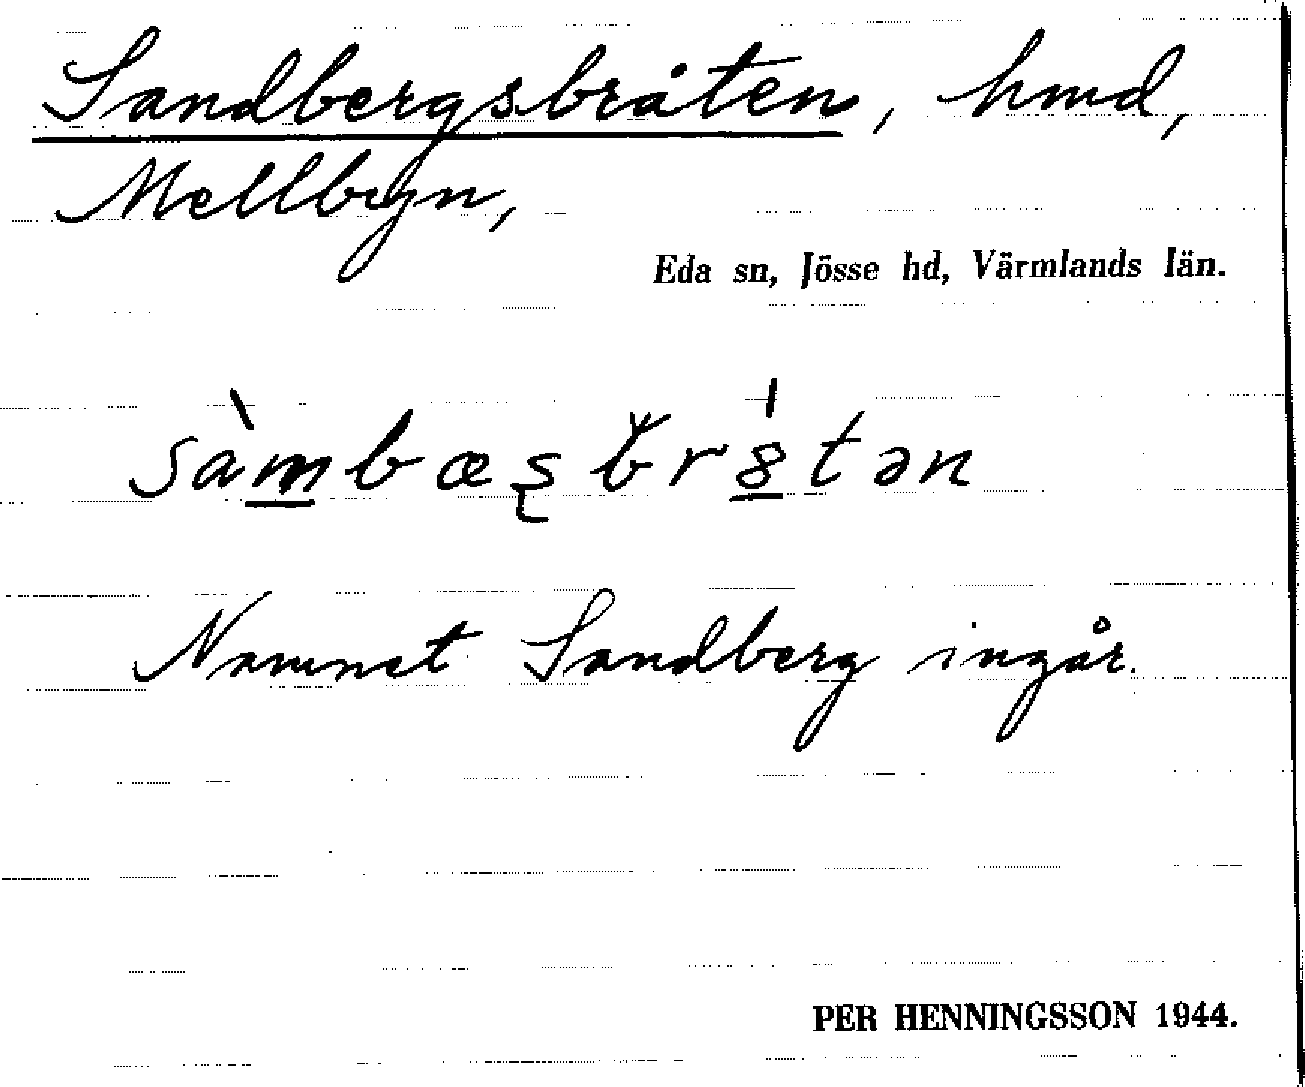 Sandbergsbråten, hmd,
Mellbyn,
Eda sn, Jösse hd, Värmlands län.
Namnet Sandberg ingår.
PER HENNINGSSON 1944.